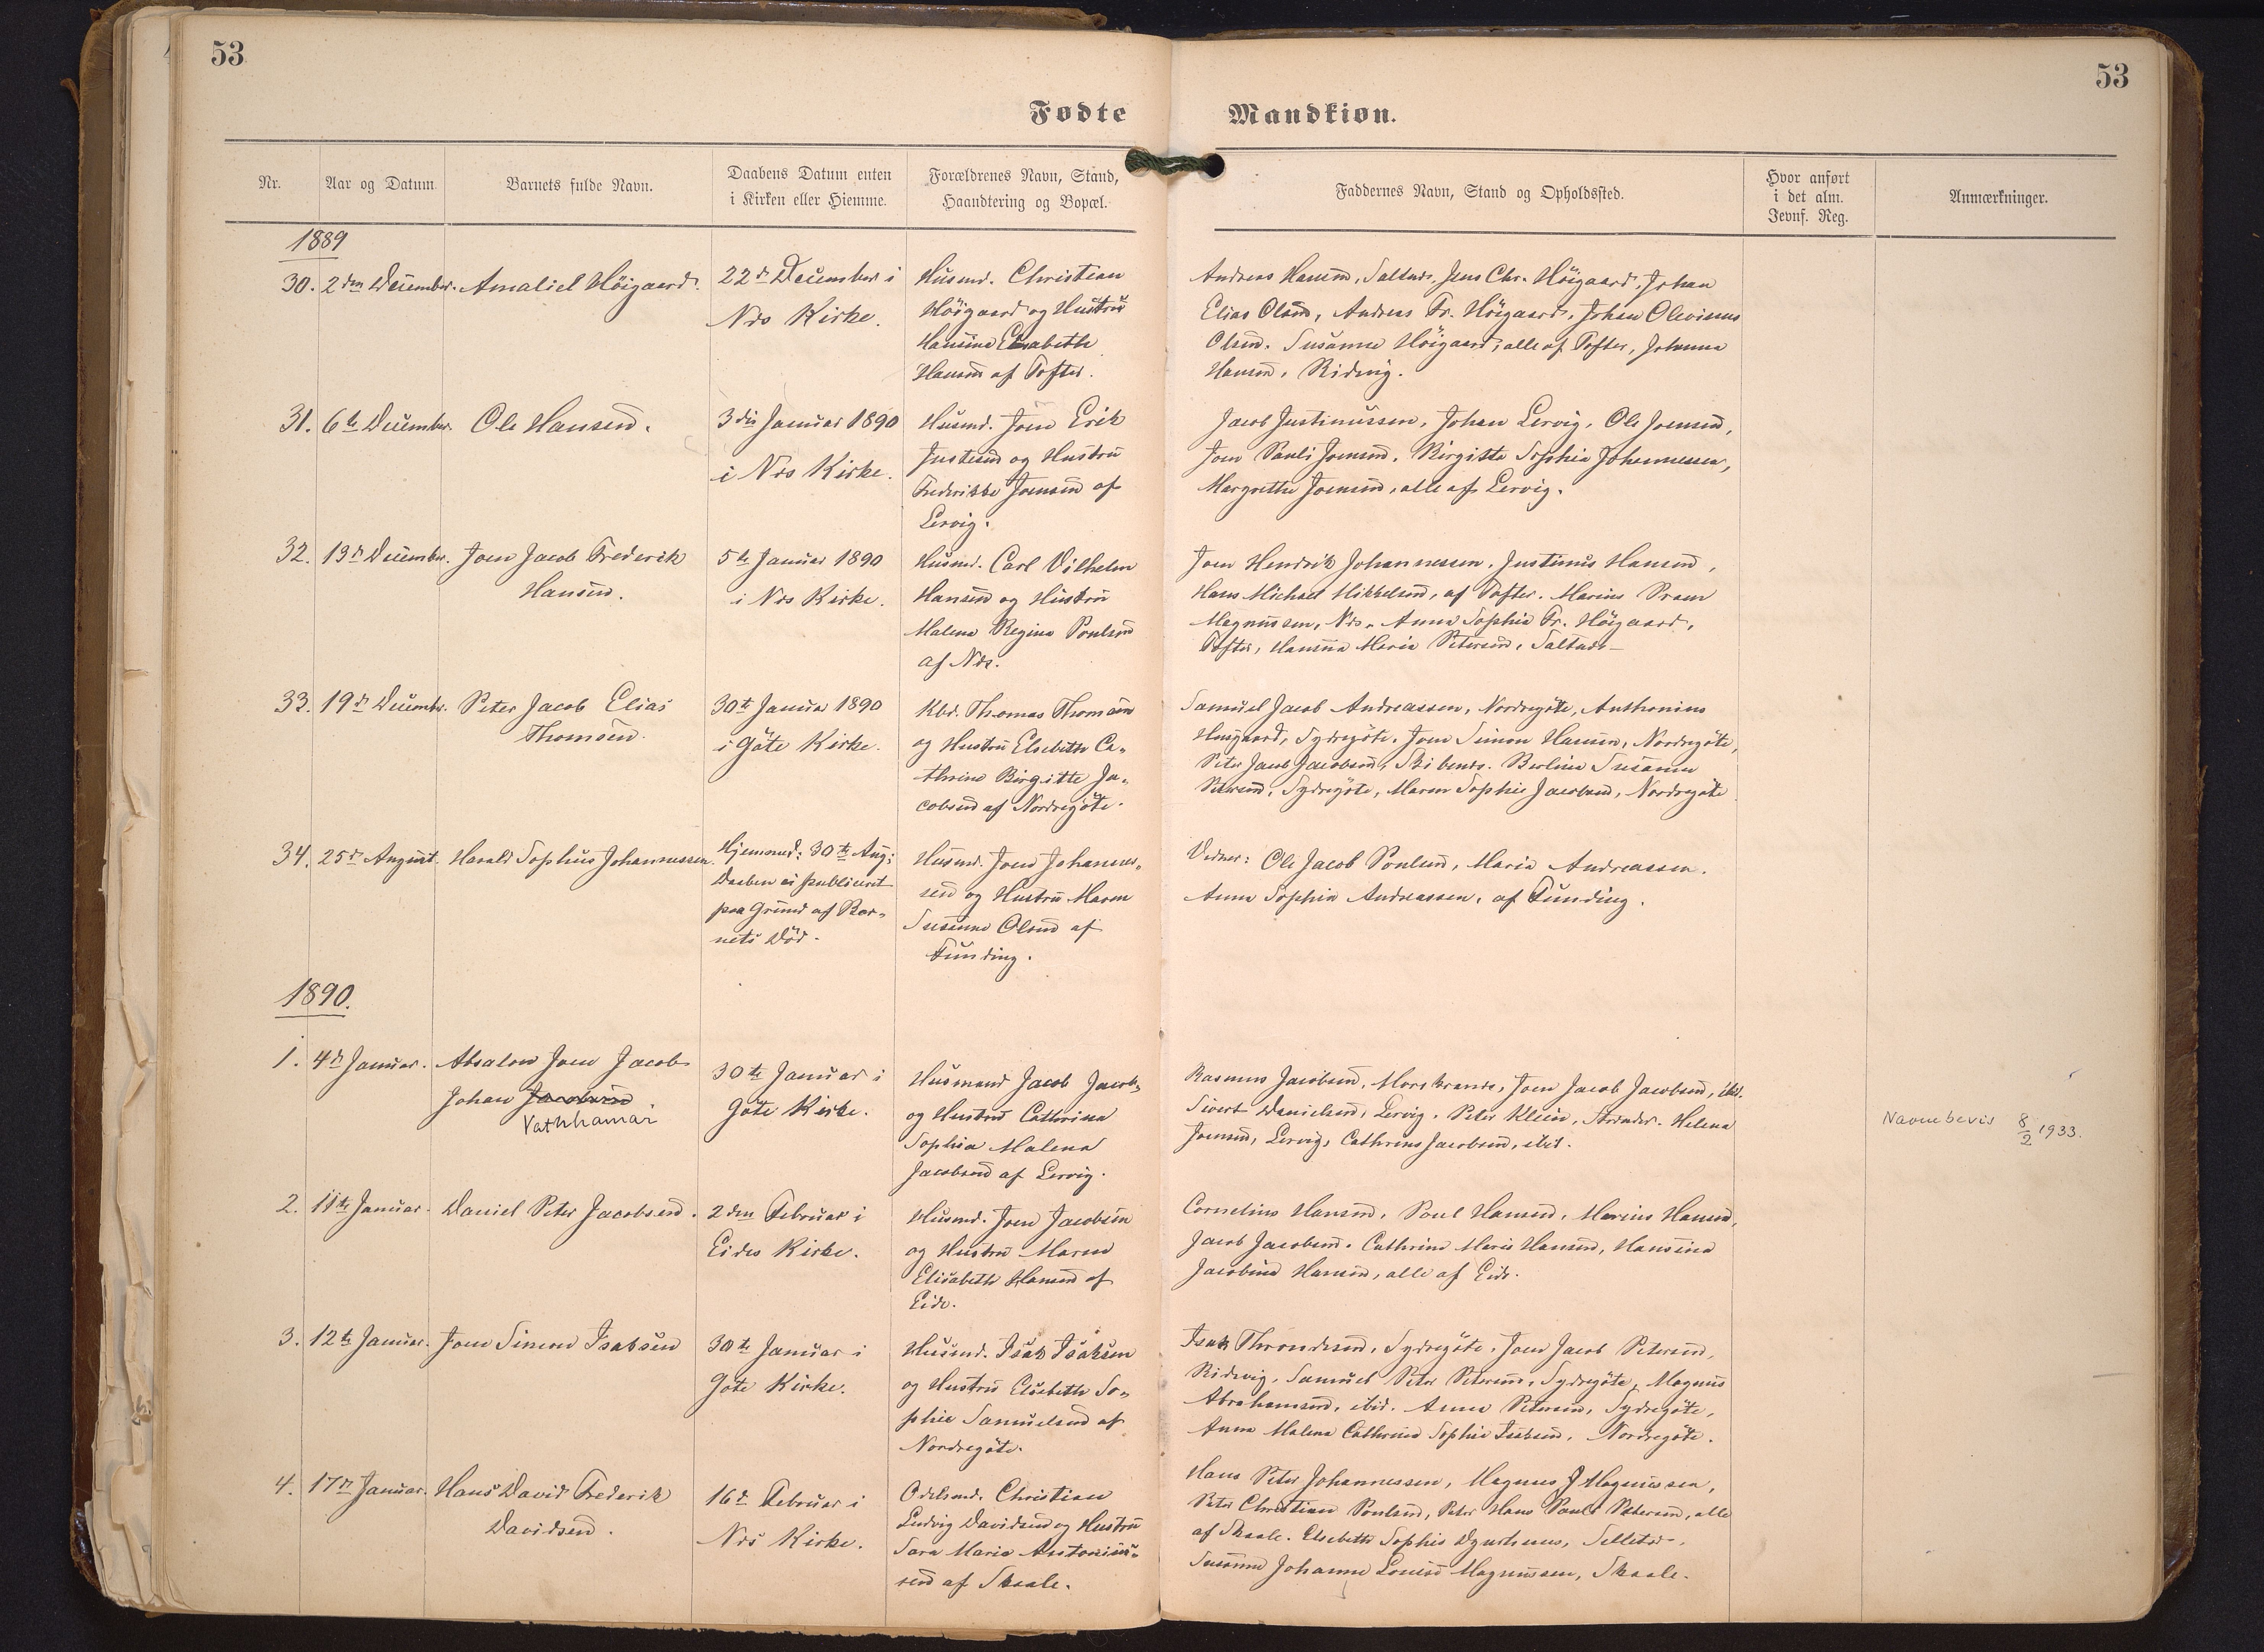 53
53
Fødte
Mandkiøn.
Nr.
Aar og Datum
Barnets fulde Navn.
Daabens Datum enten
i Kirken eller Hiemme.
Forældrenes Navn, Stand,
Haandtering og Bopæl.
Faddernes Navn, Stand og Opholdssted.
Hvor anført
i det alm.
Jevnf. Reg.
Anmærkninger.
1889
30. 2den December. Amaliel Höigaard.
22de December i
Næs Kirke.
Husmd. Christian
Höigaard og Hustru
Hansine Elsabeth
Hansen af Tofter.
Andreas Hansen, Saltnæs, Jens Chr. Höigaard, Johan
Elias Olsen, Andreas Fr. Höigaard, Johan Olevinus
Olsen. Susanne Höigaard, alle af Tofter, Johanna
Hansen, Ridevig.
31. 6te December. Ole Hansen.
3die Januar 1890
i Næs Kirke.
Husmd. Joen Erik
Justesen og Hustru
Frederikke Joensen af
Lervig.
Jacob Justinussen, Johan Lervig, Ole Joensen,
Joen Pauli Joensen. Birgitte Sophie Johannessen,
Margrethe Joensen, alle af Lervig.
32. 13de December. Joen Jacob Frederik
Hansen.
5te Januar 1890
i Næs Kirke.
Husmd. Carl Vilhelm
Hansen og Hustru
Malena Regina Poulsen
af Næs.
Joen Hendrik Johannessen, Justinus Hansen,
Hans Michael Mikkelsen, af Tofter. Marius
Magnussen, Næs. Anna Sophie Fr. Höigaard,
Tofter, Hansina Maria Petersen, Saltnæs
33. 19de Decembr. Peter Jacob Elias
Thomsen.
30te Januar 1890
i Göte Kirke.
Kbd. Thomas Thomsen
og Hustru Elsebeth Ca-
thrine Birgitte Ja-
cobsen af Nordregöte.
Samuel Jacob Andreassen, Nordregöte, Anthonius
Höigaard, Sydregöte. Joen Simon Hansen, Nordregöte,
Peter Jacob Jacobsen, Skibenæs. Berline Susanne
Petersen, Sydregöte, Maren Sophie Jacobsen, Nordregöte
34. 25de August. Harald Sophus Johannessen.
Hjemmed: 30te Aug:
Daaben ei publiceret
paa Grund af Bar-
nets Död.
Husmd. Joen Johannes-
sen og Hustru Maren
Susanne Olsen af
Funding.
Vidner: Ole Jacob Poulsen, Maria Andreassen.
Anna Sophie Andreassen, af Funding.
1890.
1. 4de Januar. Absalon Joen Jacob
Johan Jacobsen
Vathhamar
30te Januar i
Göte Kirke.
Husmand Jacob Jacob-
og Hustru Cathrina
Sophia Malena
Jacobsen af Lervig.
Rasmus Jacobsen, Morskranes, Joen Jacob Jacobsen, ibid.
Sivert Danielsen, Lervig. Peter Klein, Strender. Helena
Joensen, Lervig, Cathrine Jacobsen, ibid.
Navnebevis 8/2 1933.
2. 11te Januar. Daniel Peter Jacobsen.
2den Februar i
Eides Kirke.
Husmd. Joen Jacobsen
og Hustru Maren
Elisabeth Hansen af
Eide.
Cornelius Hansen, Poul Hansen, Marius Hansen,
Jacob Jacobsen. Cathrine Marie Hansen, Hansina
Jacobina Hansen, alle af Eide.
3. 12te Januar. Joen Simon Isaksen
30te Januar i
Göte Kirke.
Husmd. Isak Isaksen
og Hustru Elsebeth So-
phie Samuelsen af
Nordregöte.
Isak Throndesen, Sydregöte. Joen Jacob Petersen,
Ridevig. Samuel Peter Petersen, Sydregöte, Magnus
Abrahamsen, ibid. Anna Petersen, Sydregöte,
Anna Malena Cathrine Sophie Isaksen, Nordregöte.
4. 17de Januar. Hans David Frederik
Davidsen.
16de Februar i
Næs Kirke.
Odelsmd. Christian
Ludvig Davidsen og Hustru
Sara Marie Antonius-
sen af Skaale.
Hans Peter Johannessen, Magnus J Magnussen,
Peter Christian Poulsen, Peter Hans Pauli Petersen, alle
af Skaale. Elsebeth Sophie Selletræ.
Susanne Johanne Louise Magnussen, Skaale.